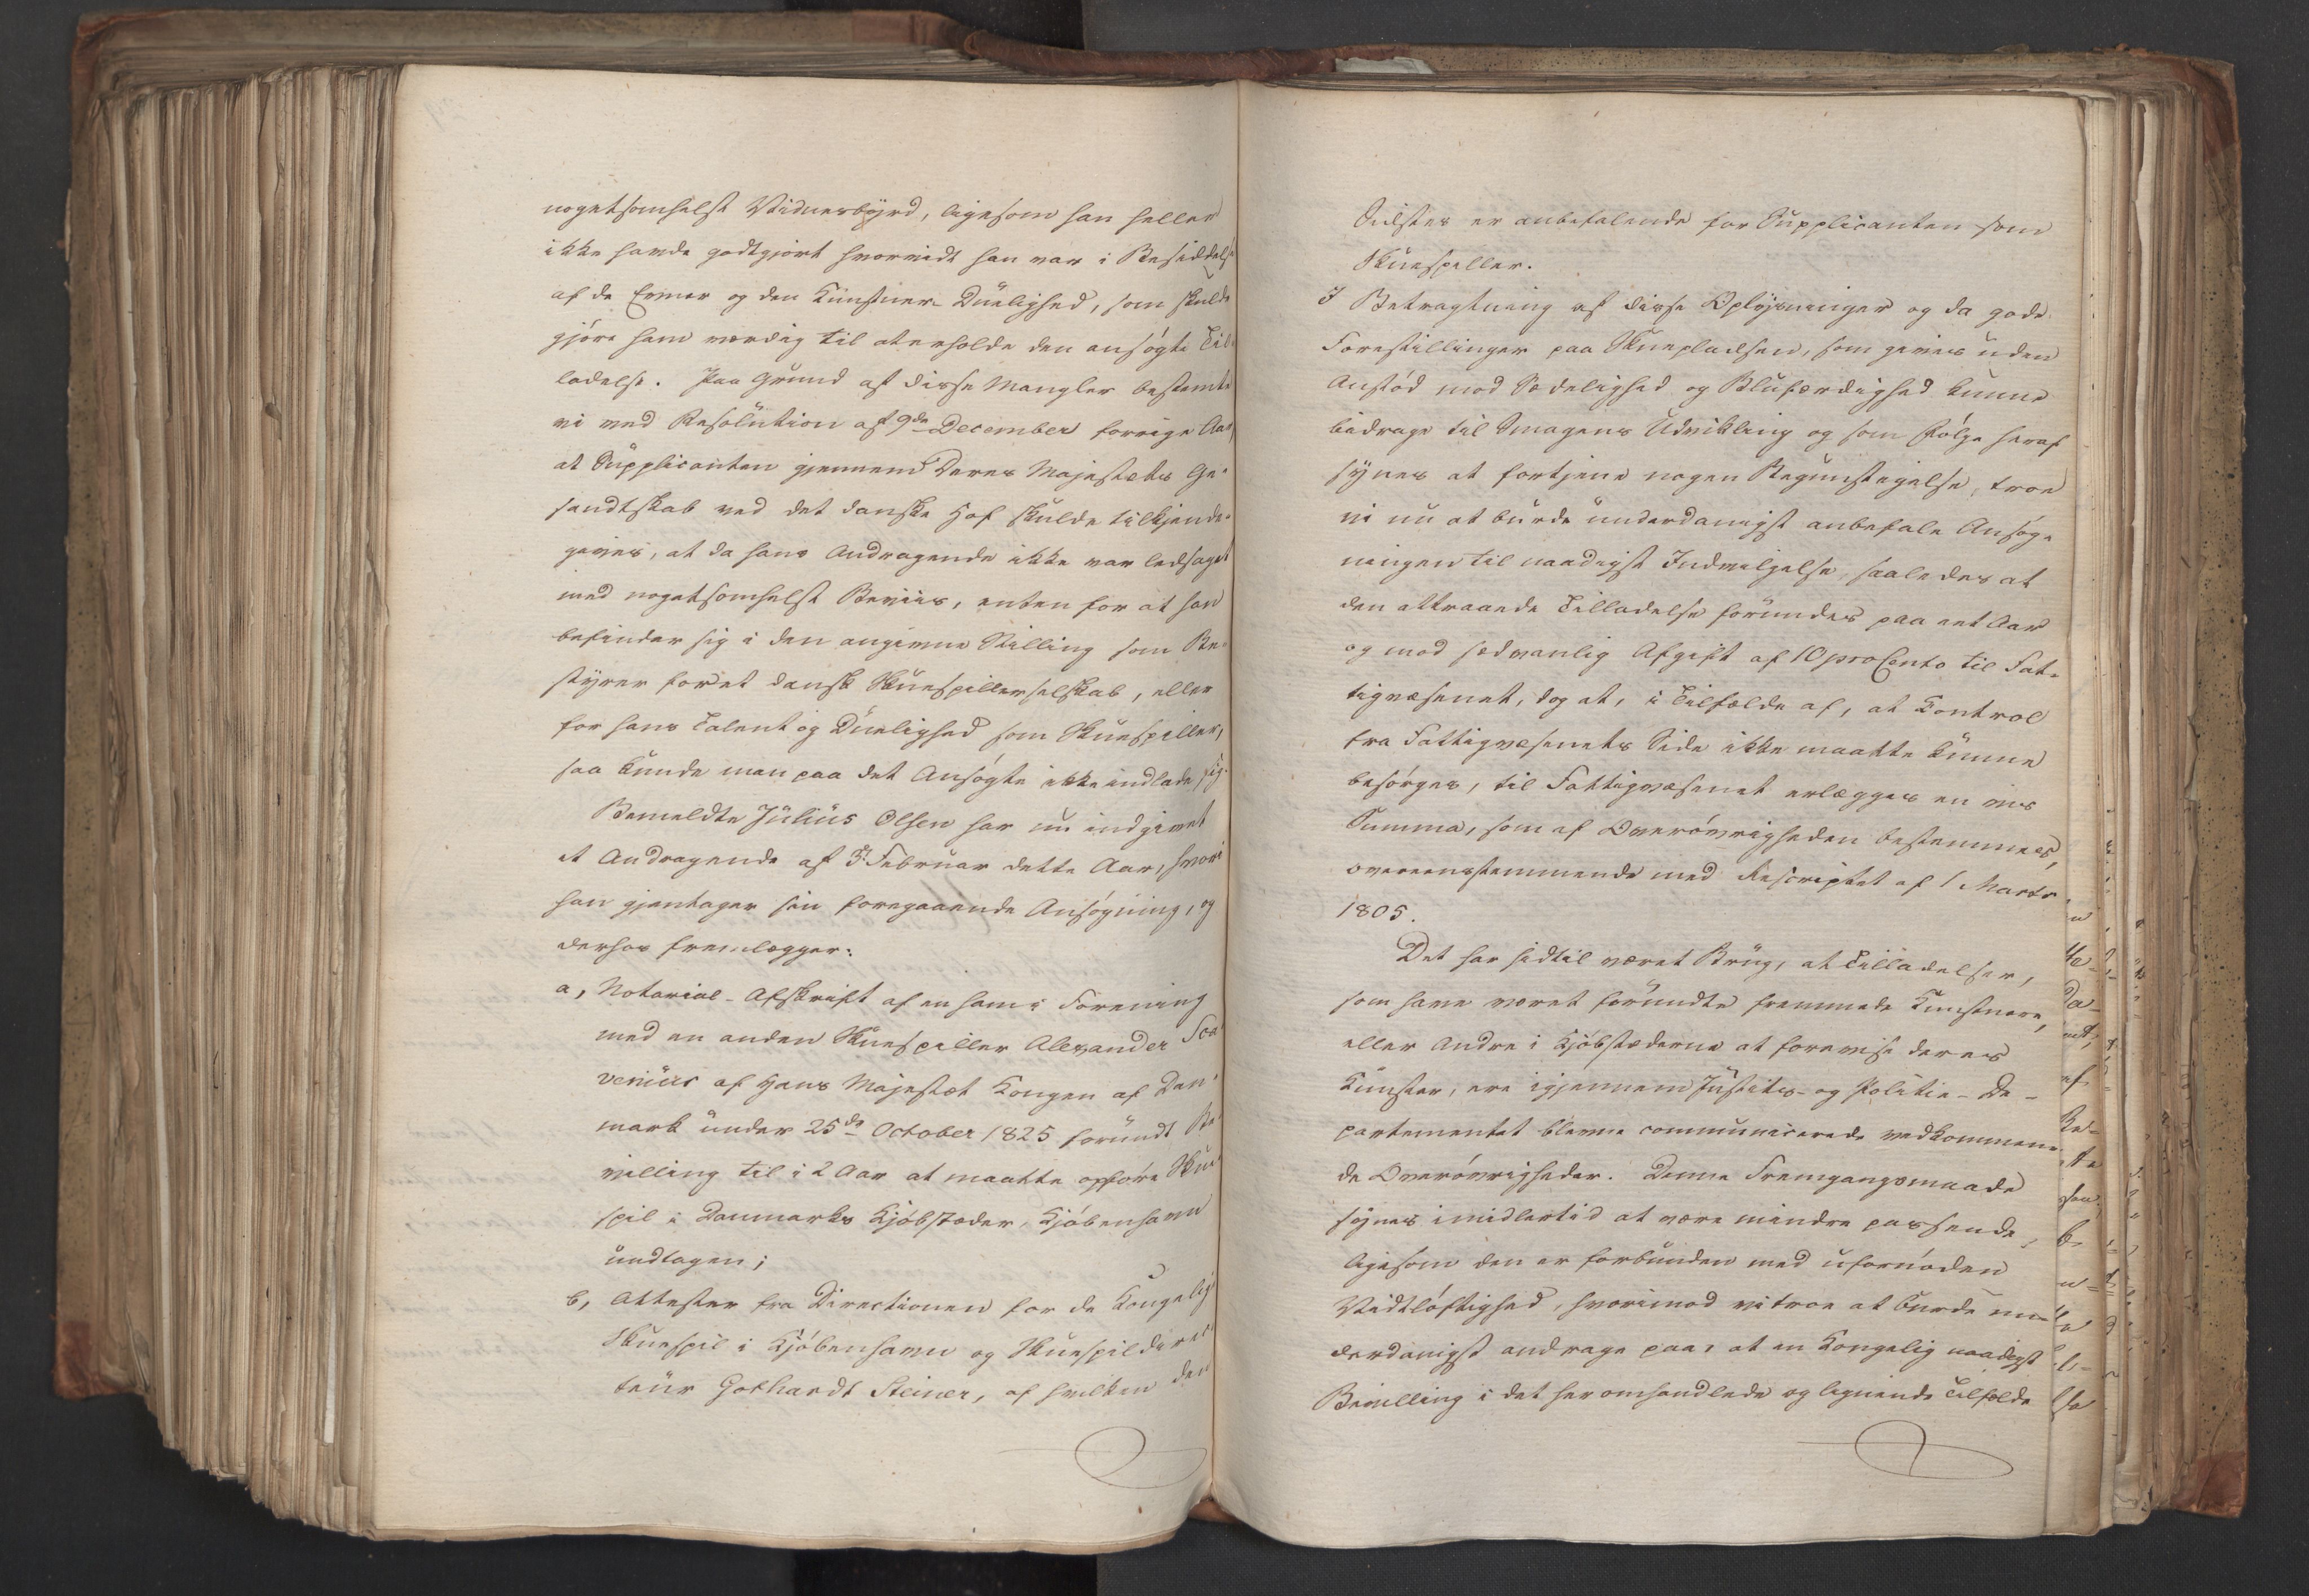 nogetsomhelst Vidnesbyrd, ligesom han heller
ikke havde godtgjort hvorvidt han var i Besiddelse
af de Evner og den Kunstner-Duelighed, som skulde
gjøre ham værdig til at erholde den ansøgte Til-
ladelse. Paa Grund af disse Mangler bestemte
vi ved Resolution af 9de December forrige Aar,
at Supplicanten gjennem Deres Majestæts Ge-
sandtskab ved det danske Hof skulde tilkjende-
gives, at da hans Andragende ikke var ledsaget
med nogetsomhelst Beviis, enten for at han
befinder sig i den angivne Stilling som Be-
styrer for et dansk Skuespillerselskab, eller
for hans Talent og Duelighed som Skuespiller,
saa kunde man paa det Ansøgte ikke indlade sig.
Bemeldte Julius Olsen har nu indgivet
et Andragende af 3. Februar dette Aar, hvori
han gjentager sin foregaaende Ansøgning, og
derhos fremlægger:
a, Notarial-Afskrift af en ham i Forening
med en anden Skuespiller Alexander
af Hans Majestæt Kongen af Dan-
mark under 25de October 1825 forundt Be-
villing til i 2 Aar at maatte opføre Skue-
spil i Danmarks Kjøbstæder, Kjøbenhavn
undtagen;
b, Attester fra Directionen for de Kongelige
Skuespil i Kjøbenhavn og Skuespildirec-
teur Gothardt Steiner, af hvilken den
sidstes er anbefalende for Supplicanten som
Skuespiller.
I Betragtning af disse Oplysninger og da gode
Forestillinger paa Skuepladsen, som gives uden
Anstød mod Sædelighed og Blufærdighed kunne
bidrage til Smagens Udvikling og som Følge heraf
synes at fortjene nogen Begunstigelse, troe
vi nu at burde underdanigst anbefale Ansøg-
ningen til naadigst Indvilgelse, saaledes at
den attraaede Tilladelse forundes paa eet Aar
og mod sædvanlig Afgift af 10 pro Cento til Fat-
tigvæsenet, dog at, i Tilfælde af, at Control
fra Fattigvæsenets Side ikke maatte kunne
besørges, til Fattigvæsenet erlægges en vis
Summa, som af Overøvrigheden bestemmes,
overeensstemmende med Rescriptet af 1 Marts
1805.
Det har hidtil været Brug, at Tilladelser,
som have været forundte fremmede Kunstnere,
eller Andre i Kjøbstæderne at forevise deres
Kunster, ere igjennem Justits- og Politie-De-
partementet blevne communicerede vedkommen-
de Overøvrigheder. Denne Fremgangsmaade
synes imidlertid at være mindre passende,
ligesom den er forbunden med ufornøden
Vidtløftighed, hvorimod vi troe at burde un-
derdanigst andrage paa, at en Kongelig naadigst
Bevilling i det her omhandlede og lignende Tilfælde